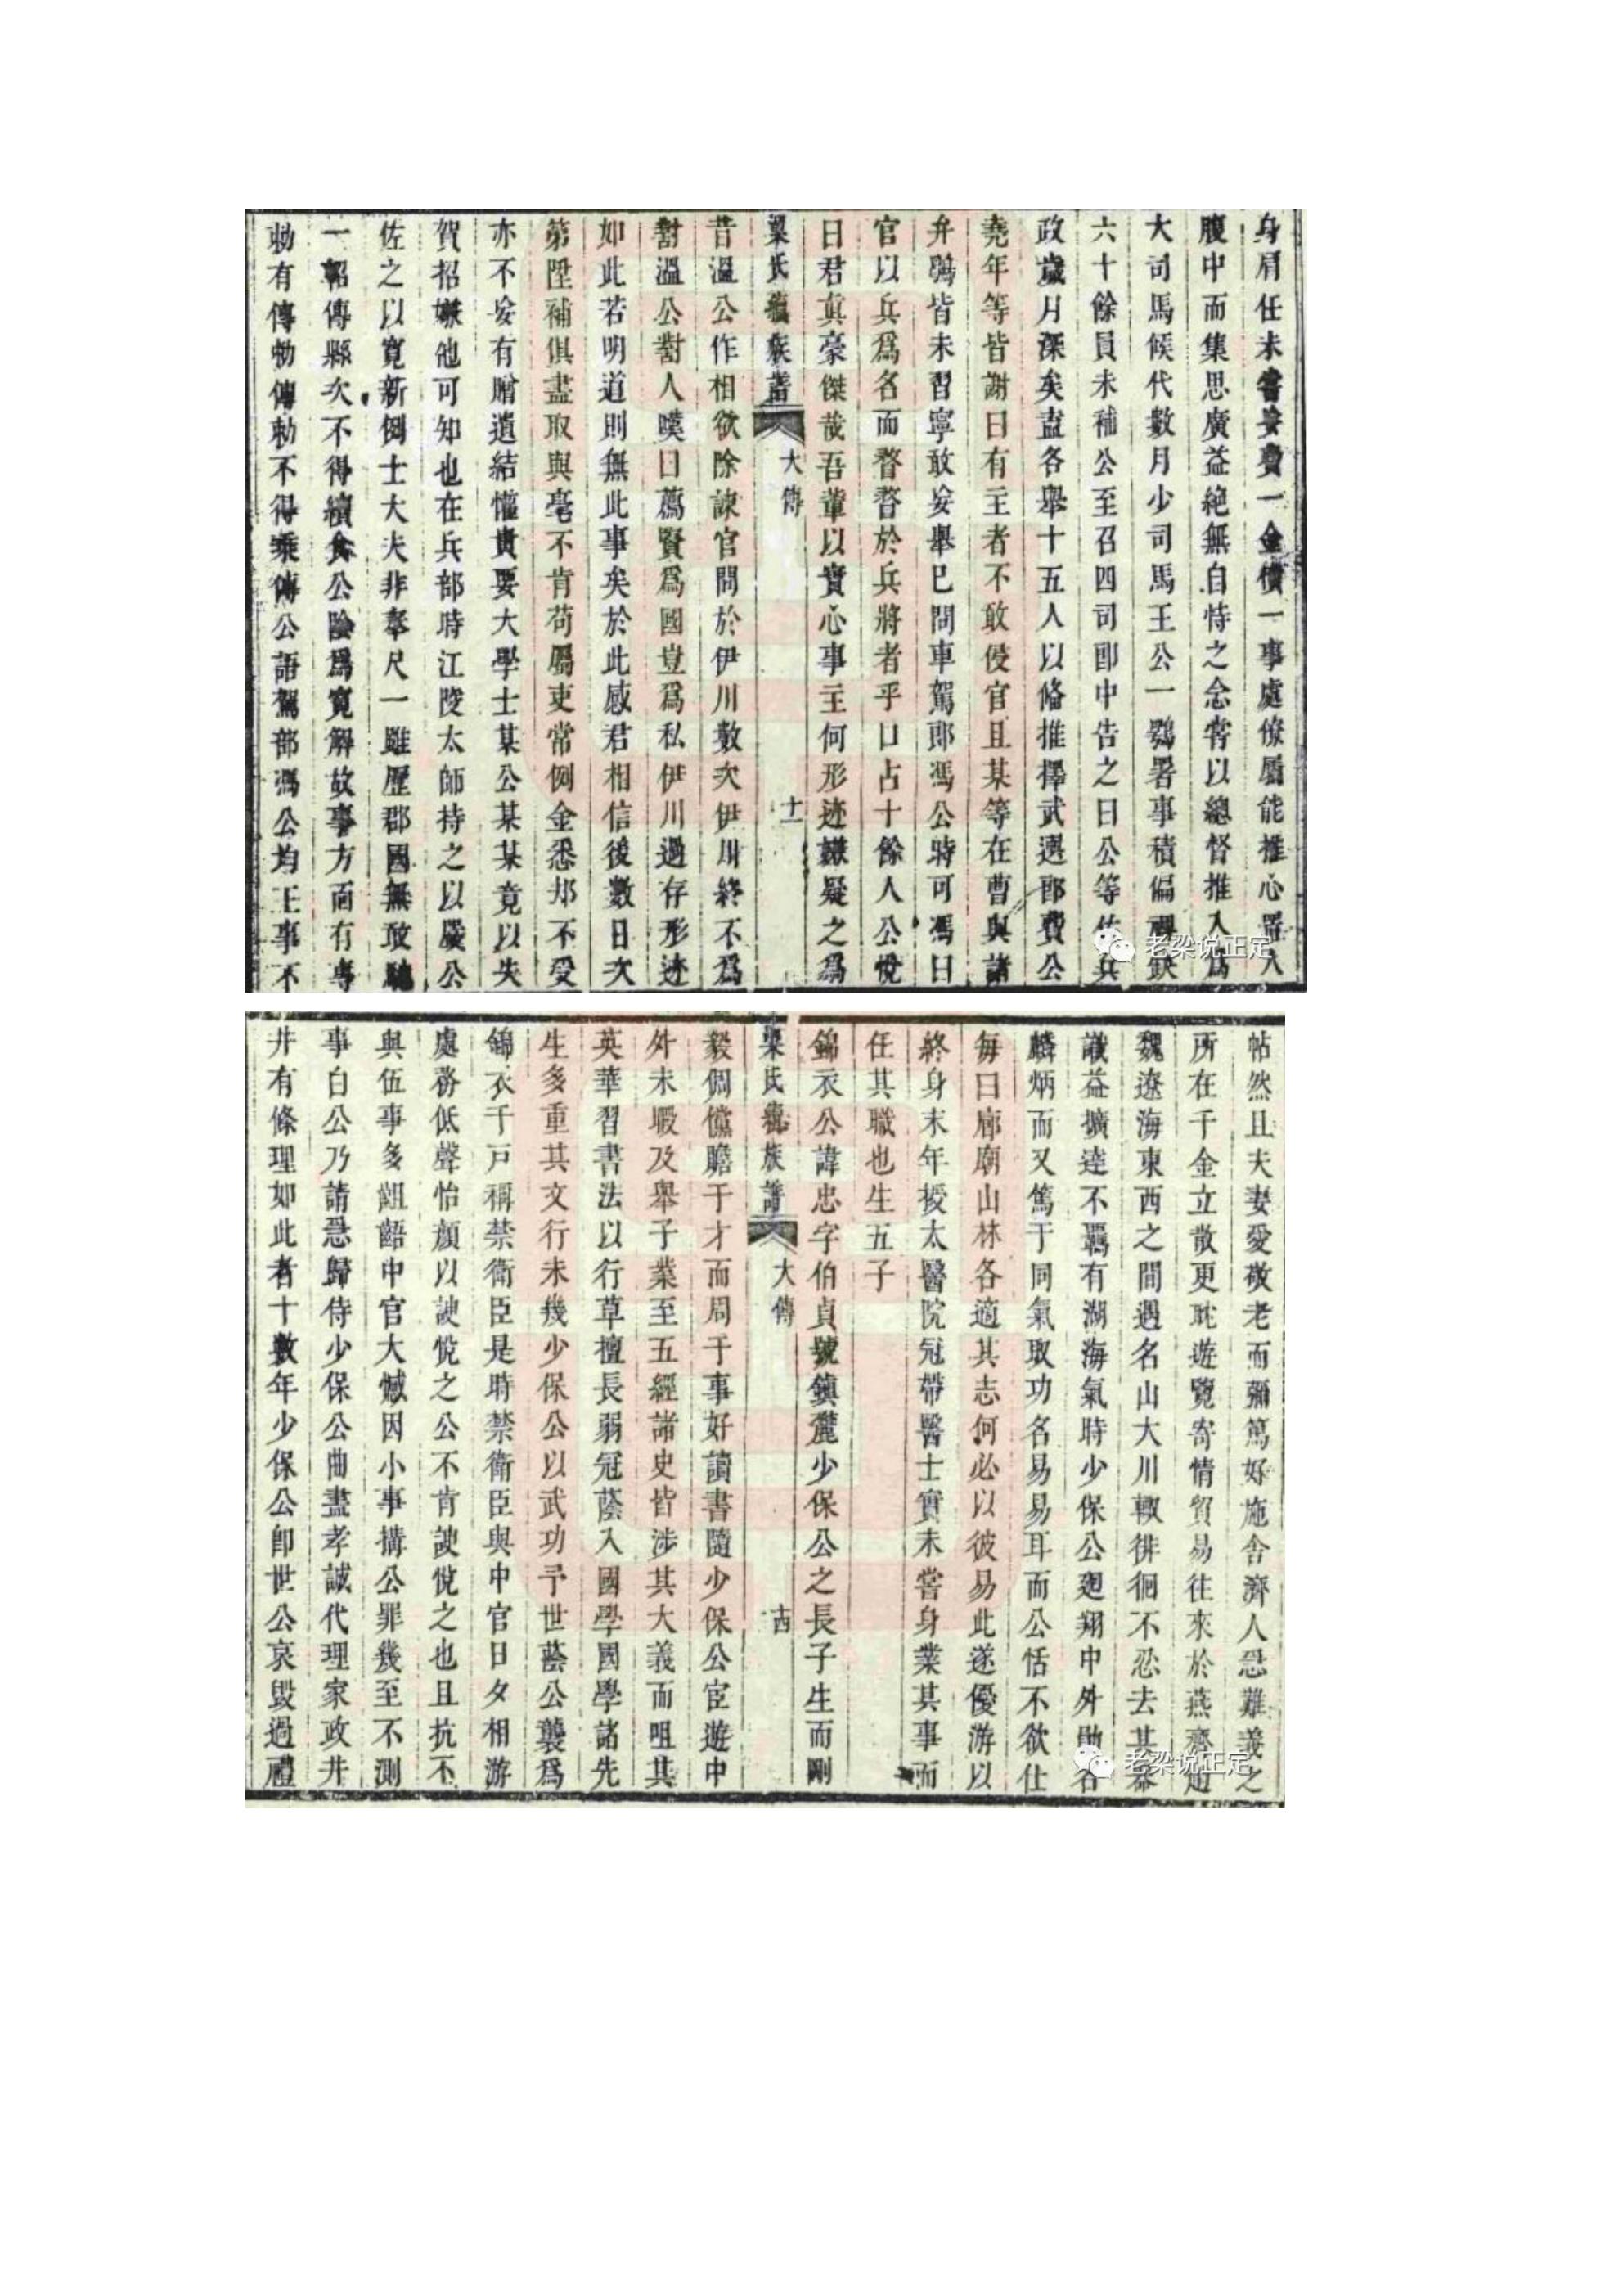 身肩任未嘗妄費一金償一事處僚屬能推心置人
腹中而集思廣益絕無自恃之念嘗以總督推入為
大司馬候代數月少司馬王公一鶚署事積偏裨缺
六十餘員未補公至召四司郎中告之曰公等佐兵
政歲月深矣盍各舉十五人以備推擇武選郎費公
堯年等皆謝曰有主者不敢侵官且某等在曹與諸
弁鶡皆未習寧敢妄舉已問車駕郎馮公時可馮曰
官以兵爲名而瞀瞀於兵將者乎口占十餘人公悅
曰君眞豪傑哉吾輩以實心事主何形迹嫌疑之爲
梁氏族譜 大傳 十一
昔溫公作相欲除諫官問於伊川數次伊川終不爲
對溫公對人嘆曰薦賢爲國豈爲私伊川過存形迹
如此若明道則無此事矣於此感君相信後數日次
第陞補俱盡取與毫不肯苟屬吏常例金悉却不受
亦不妄有贈遺結懽貴要大學士某公某某竟以失
賀招嫌他可知也在兵部時江陵太師持之以嚴公
佐之以寬新例士大夫非奉尺一雖歷郡國無敢馳
一軺傳縣次不得續食公陰爲寬解故事方面有專
勅有傳勅傳勅不得乘傳公語駕部馮公均王事不
帖然且夫妻愛敬老而彌篤好施舍濟人急難義之
所在千金立散更耽遊覽寄情貿易往來於燕齊趙
魏遼海東西之間遇名山大川輙徘徊不忍去其器
識益擴達不羈有湖海氣時少保公廻翔中外勛名
麟炳而又篤于同氣取功名易易耳而公恬不欲仕
每曰廊廟山林各適其志何必以彼易此遂優游以
終身末年授太醫院冠帶醫士實未嘗身業其事而
任其職也生五子
錦衣公諱忠字伯貞號鎮麓少保公之長子生而剛
梁氏族譜 大傳 十四
毅倜儻贍于才而周于事好讀書隨少保公宦遊中
外未暇及舉子業至五經諸史皆涉其大義而咀其
英華習書法以行草擅長弱冠蔭入國學國學諸先
生多重其文行未幾少保公以武功予世蔭公襲爲
錦衣千戸稱禁衛臣是時禁衛臣與中官日夕相游
處務低聲怡顏以諛悅之公不肯諛悅之也且抗不
與伍事多齟齬中官大憾因小事搆公罪幾至不測
事白公乃請急歸侍少保公曲盡孝誠代理家政井
井有條理如此者十數年少保公卽世公哀毀過禮
老梁说正定
老梁说正定